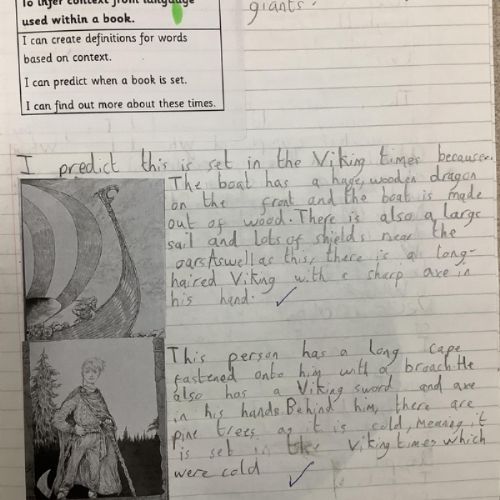 To infer context from language
used within a book.
I can create definitions for words
based on context.
I can predict when a book is set.
I can find out more about these times.
giants.
I predict this is set in the Viking times because...
The boat has a huge, wooden dragon
on the front and the boat is made
out of wood. There is also a large
sail and lots of shields near the
oars. Aswell as this, there is a long-
haired Viking with a sharp axe in
his hand.
This person has a long cape
fastened onto him with a broach. He
also has a Viking sword and axe
in his hands. Behind him, there are
pine trees as it is cold, meaning it
is set in the Viking times which
were cold